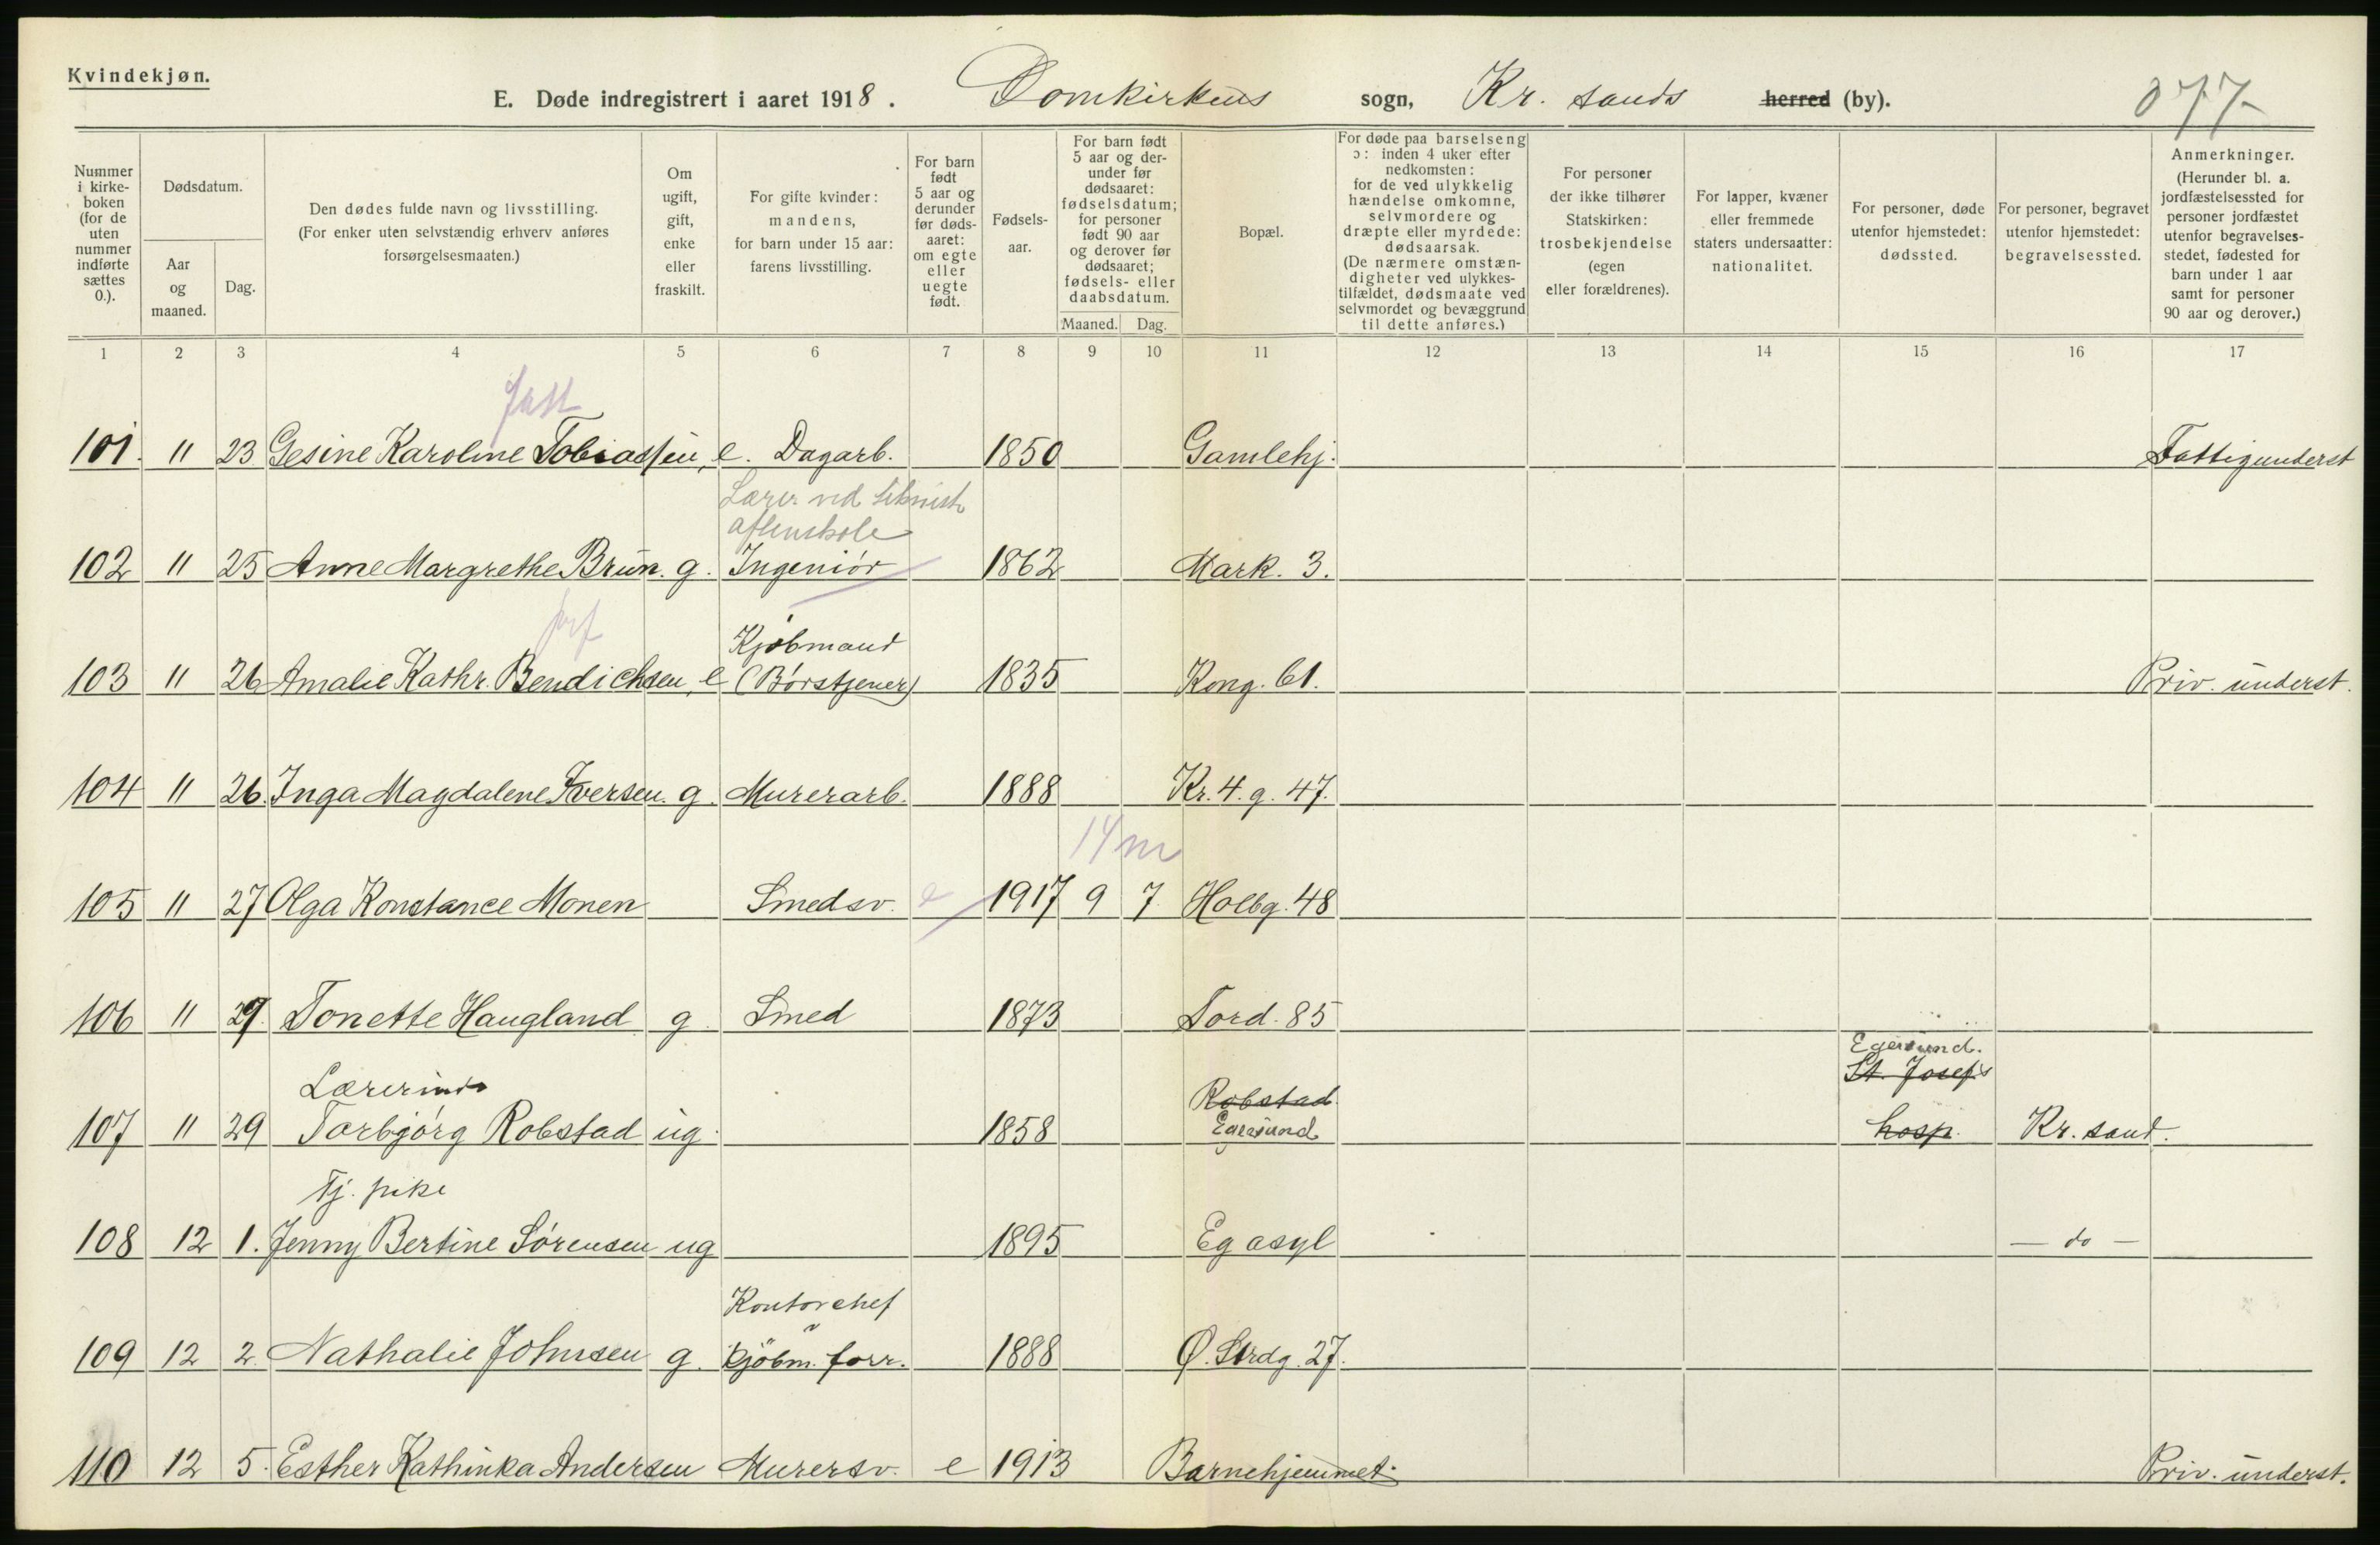 Kvindekjøn.
E. Døde indregistrert i aaret 1918. Domkirkens sogn, Kr. sands herred (by). 077
Nummer i kirke-boken (for de uten nummer indførte sættes 0.).
Dødsdatum.
Aar og maaned.
Dag.
Den dødes fulde navn og livsstilling. (For enker uten selvstændig erhverv anføres forsørgelsesmaaten.)
Om ugift, gift, enke eller fraskilt.
For gifte kvinder: mandens, for barn under 15 aar: farens livsstilling.
For barn født 5 aar og derunder før døds-aaret: om egte eller uegte født.
Fødsels-aar.
For barn født 5 aar og der-under før dødsaaret: fødselsdatum; for personer født 90 aar og derover før dødsaaret; fødsels- eller daabsdatum.
Maaned. Dag.
Bopæl.
For døde paa barselseng ɔ: inden 4 uker efter nedkomsten: for de ved ulykkelig hændelse omkomne, selvmordere og dræpte eller myrdede: dødsaarsak. (De nærmere omstæn-digheter ved ulykkes-tilfældet, dødsmaate ved selvmordet og bevæggrund til dette anføres.)
For personer der ikke tilhører Statskirken: trosbekjendelse (egen eller forældrenes).
For lapper, kvæner eller fremmede staters undersaatter: nationalitet.
For personer, døde utenfor hjemstedet: dødssted.
For personer, begravet utenfor hjemstedet: begravelsessted.
Anmerkninger. (Herunder bl. a. jordfæstelsessted for personer jordfæstet utenfor begravelses-stedet, fødested for barn under 1 aar samt for personer 90 aar og derover.)
1 2 3 4 5 6 7 8 9 10 11 12 13 14 15 16 17
101. 11 23 Gesine Karoline Tobiassen, e. Dagarb. 1850 Gamlehj. Fattigunderst
Lærer ved teknisk
aftenskole
102 11 25 Anne Margrethe Brun. g. Ingeniør 1862 Mark. 3.
Kjøbmand
103 11 26 Amalie Kathr. Bendichsen, e (Børstjener) 1835 Kong. 61. Priv. underst.
104 11 26. Inga Magdalene Iversen. g. Murerarb. 1888 Kr. 4. g. 47.
14 m
105 11 27 Olga Konstance Monen Smedsv. e 1917 9 7 Holbg. 48
106 11 29. Tonette Haugland g Smed 1873 Tord. 85
Lærerinde Robstad Egersund. St. Josef's
107 11 29 Torbjørg Robstad ug. 1858 Egersund hosp. Kr. sand.
Tj. pike
108 12 1. Jenny Bertine Sørensen ug 1895 Eg asyl — do —
Kontorchef
109 12 2. Nathalie Johnsen g. Kjøbm. forr. 1888 Ø. Strdg. 27.
110 12 5. Esther Kathinka Andersen Murersv. e 1913 Barnehjemmet. Priv. underst.